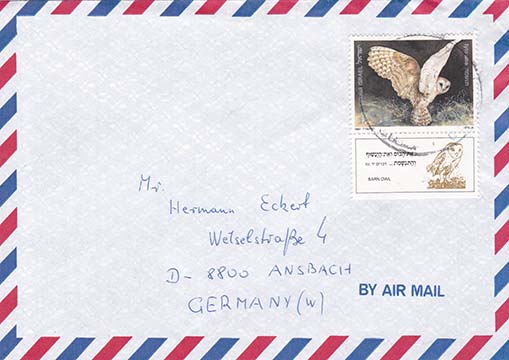 ISRAEL
את הכוס ואת הינשוף
BARN OWL
Mr.
Hermann Eckerl
Wetselstraße 4
D- 8800 ANSBACH
GERMANY (W)
BY AIR MAIL